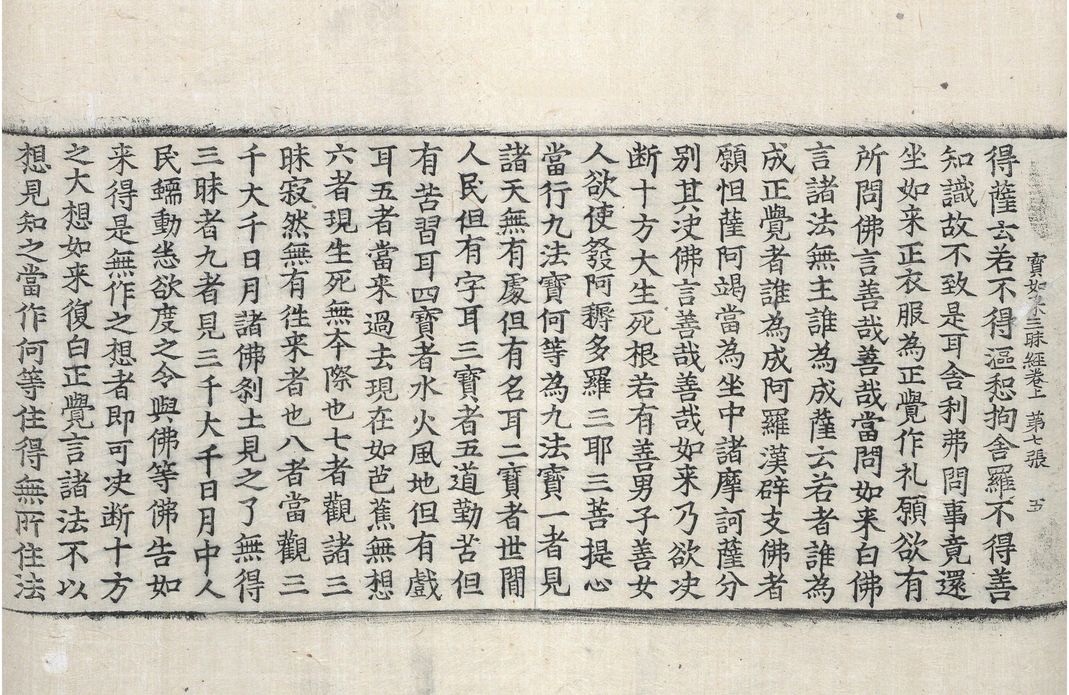 寶如来三昧經卷上 第七張 五
得薩云若不得漚恕拘舍羅不得善
知識故不致是耳舍利弗問事竟還
坐如来正衣服為正覺作礼願欲有
所問佛言善哉善哉當問如来白佛
言諸法無主誰為成薩云若者誰為
成正覺者誰為成阿羅漢辟支佛者
願怛薩阿竭當為坐中諸摩訶薩分
別其决佛言善哉善哉如来乃欲决
断十方大生死根若有善男子善女
人欲使發阿耨多羅三耶三菩提心
當行九法寶何等為九法寶一者見
諸天無有處但有名耳二寶者世間
人民但有字耳三寶者五道勤苦但
有苦習耳四寶者水火風地但有戲
耳五者當来過去現在如芭蕉無想
六者現生死無夲際也七者觀諸三
昧寂然無有徃来者也八者當觀三
千大千日月諸佛剎土見之了無得
三昧者九者見三千大千日月中人
民蠕動悉欲度之令與佛等佛告如
来得是無作之想者即可决断十方
之大想如来復白正覺言諸法不以
想見知之當作何等住得無所住法